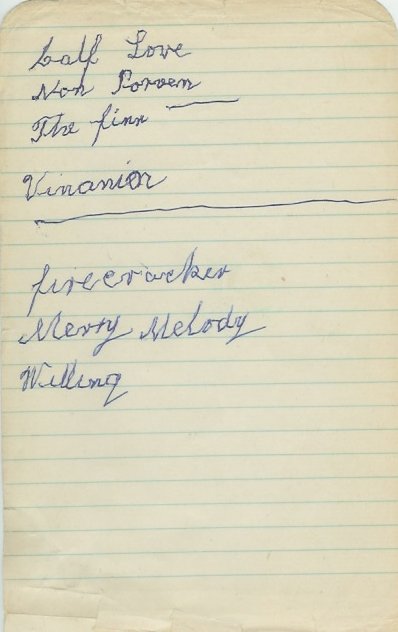 Calf Love
Non
The finn
firecracker
Merry Melody
Willing